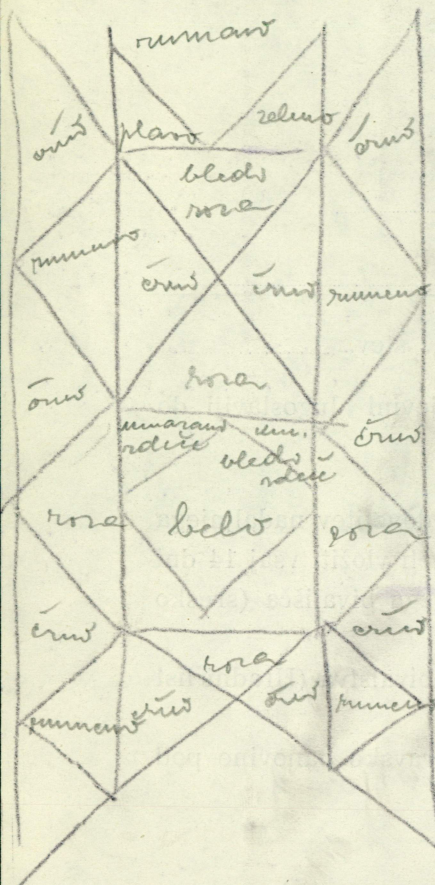 rumeno
črno plavo zeleno črno
bledo
roza
rumeno
črno črno rumeno
roza
črno umazano um. črno
rdeče bledo
rdeče
roza belo roza
črno črno
roza
rumeno črno črno rumeno